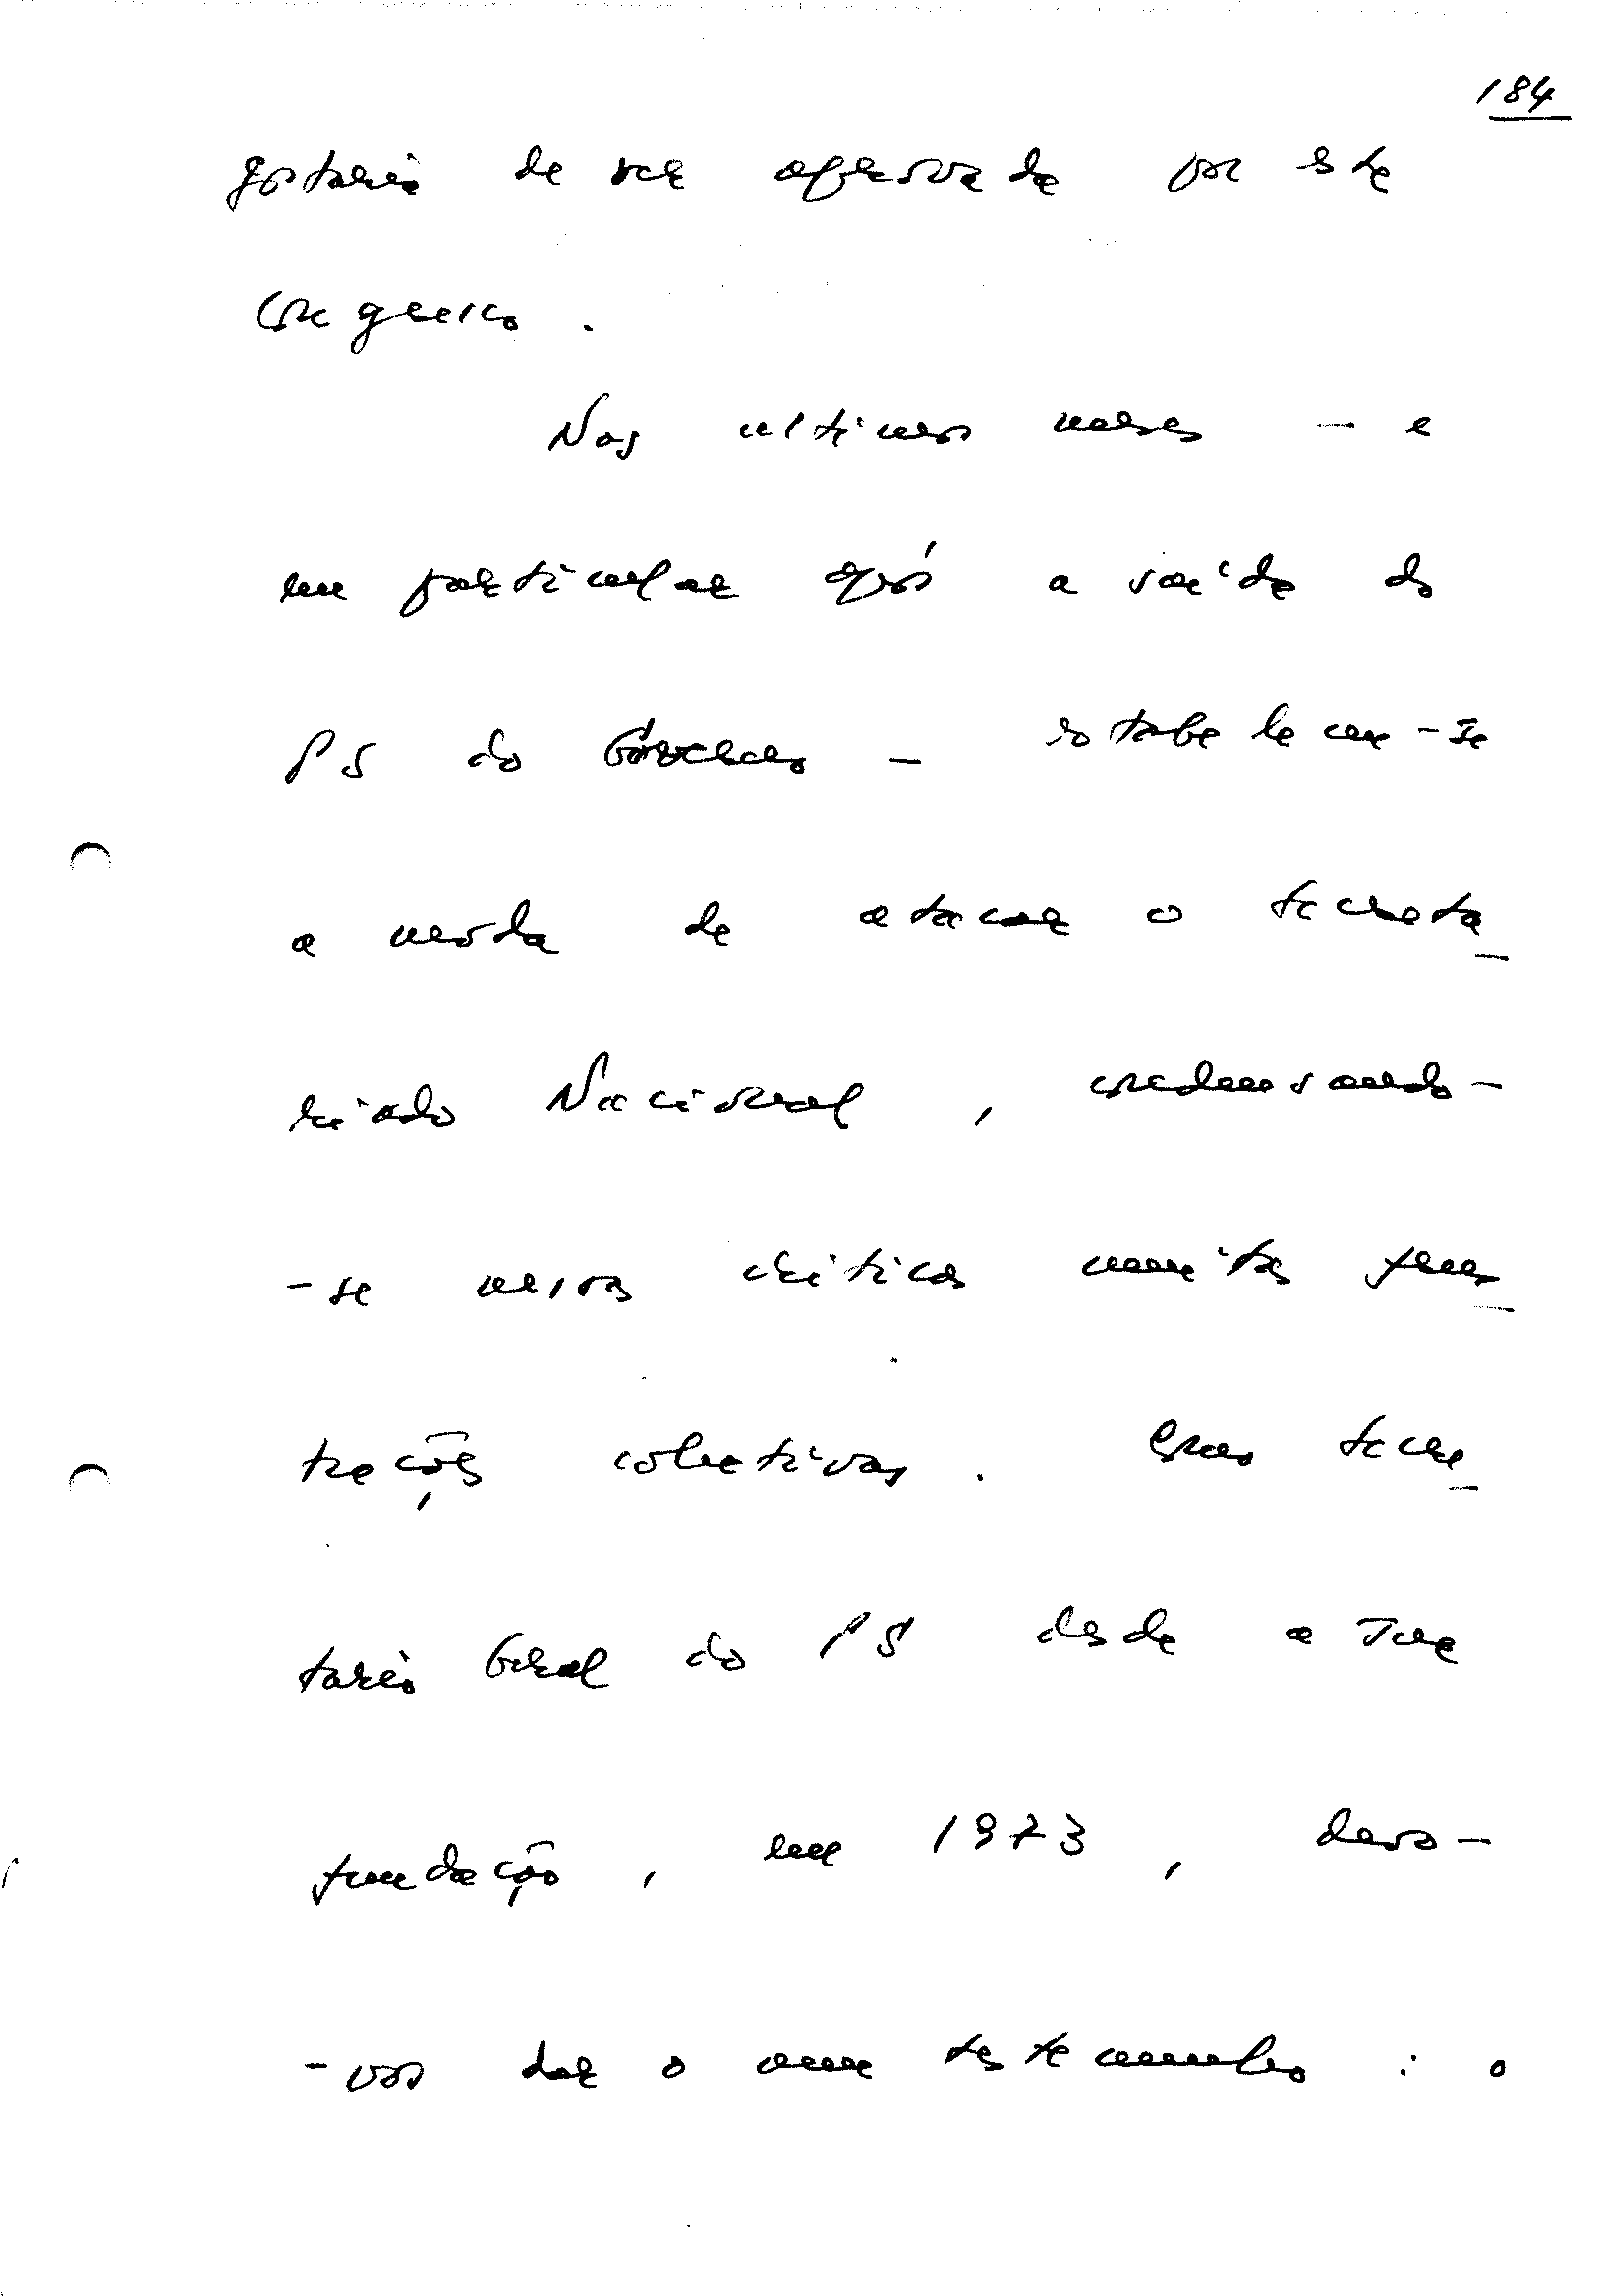 184
gostaria de ver aprovada por este
congresso.
Nos ultimos meses — e
em particular após a saída do
PS do Governo — estabeleceu-se
a moda de atacar o Secreta-
riado Nacional, condensando-
-se nisso críticas muitas frus-
trações colectivas. Como Secre-
tário Geral do PS desde a sua
fundação, em 1973, devo-
-vos dar o meu testemunho: o